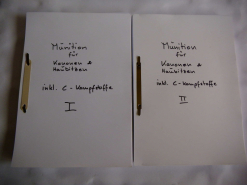 Munition
für
Kanonen &
Haubitzen
inkl. C-Kampfstoffe
I
Munition
für
Kanonen &
Haubitzen
inkl. C-Kampfstoffe
II